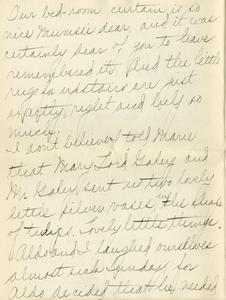 Our bed-room curtain is so
nice Mumsie dear, and it was
certainly dear of you to have
remembered it. And the little
rugs upstairs are just
exactly right and help so
much.
I don't believe I told Marie
that Mary Lord and
Mr. sent us two lovely
little silver vases in the shape
of tulips. Lovely little things.
Aldo and I laughed ourselves
almost sick Sunday, for
Aldo decided that he needed